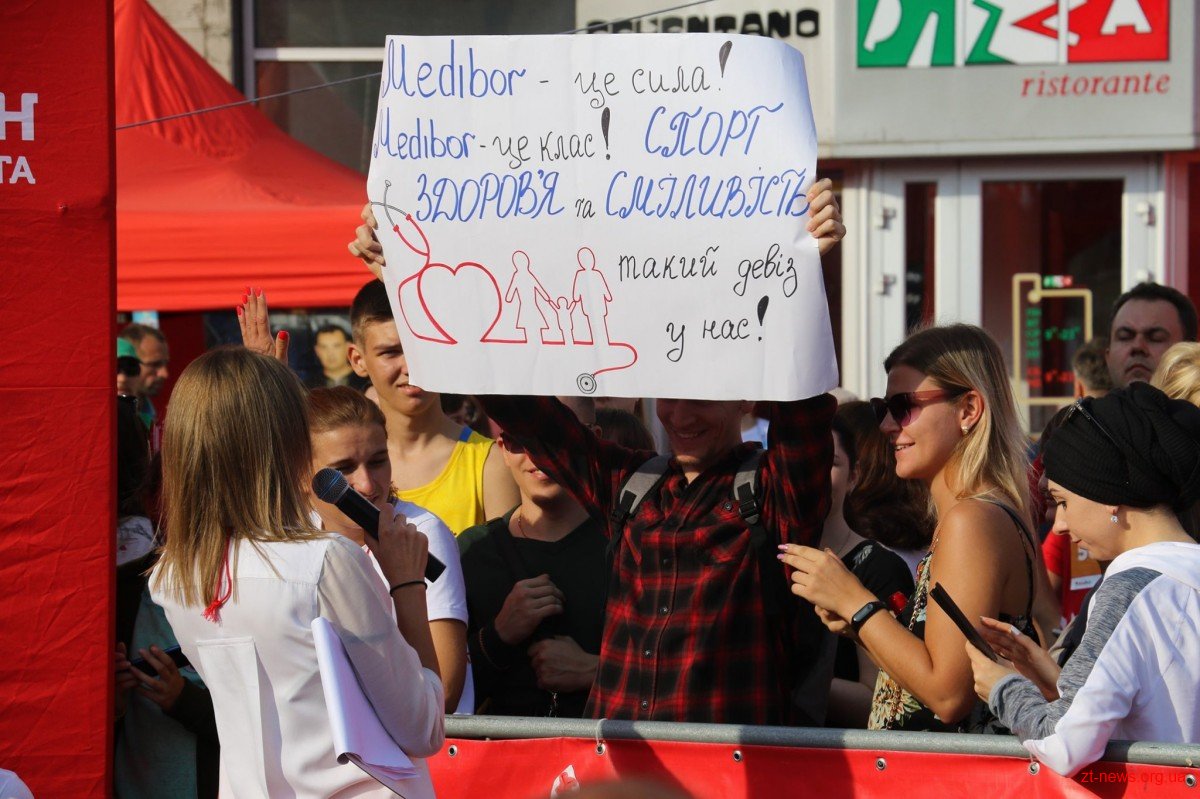 Medibor - це сила!
Medibor - це клас! СПОРТ
ЗДОРОВ'Я та СМІЛИВІСТЬ
такий девіз
у нас!
PIZZA
ristorante
Н
ТА
zt-news.org.ua